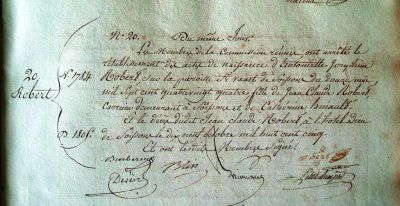 N.º 20. Du même Jour.
20
Robert
Les Membres de la Commission réunie ont arrêté le
rétablissement des actes de naissance d'Antoinette Josephine
N. 1784 Robert sur la paroisse St Vaast de Soissons du douze mai
mil sept cent quatrevingt quatre, fille de Jean Claude Robert
demeurant à Soissons et de Catherine
D. 1805. Et le décès dudit Jean Claude Robert à l'hotel Dieu
de Soissons le dix neuf octobre mil huit cent cinq.
Et ont lesdits Membres Signé